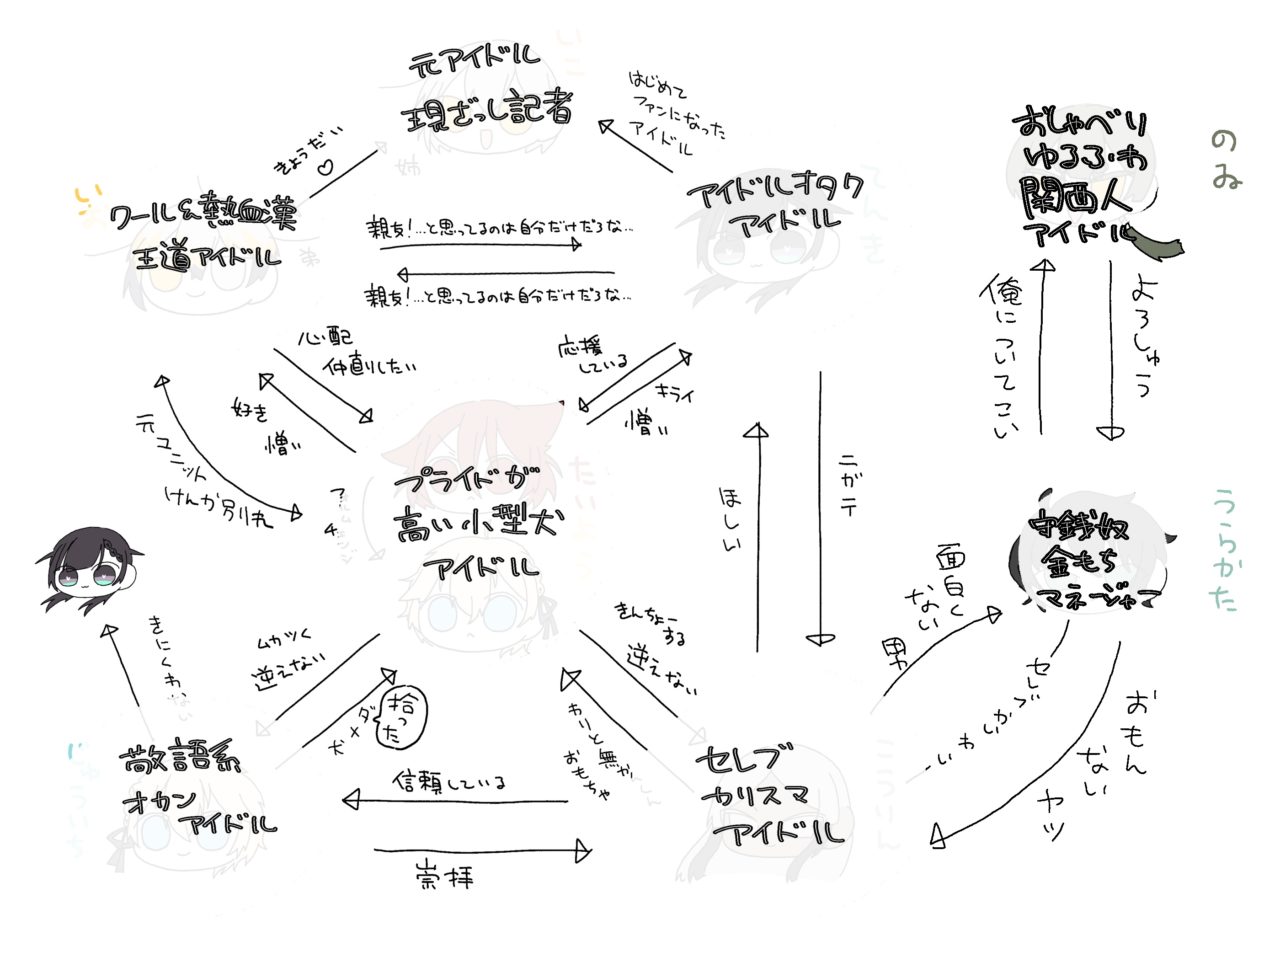 元アイドル
現ざっし記者
はじめて
ファンになった
アイドル
きょうだい♡
姉
い
クール&熱血漢
王道アイドル
弟
アイドルオタク
アイドル
親友!…と思ってるのは自分だけだろな…
親友!…と思ってるのは自分だけだろな…
おしゃべり
ゆるふわ
関西人
アイドル
のゐ
俺についてこい
よろしゅう
心配
仲直りしたい
好き
憎い
応援
している
キライ
憎い
元ユニット
けんか別れ
プライドが
高い小型犬
アイドル
ほしい
ニガテ
守銭奴
金もち
マネージャー
うらかた
面白く
ない
男
おもん
ない
ヤツ
きにくわない
ムカツク
逆えない
拾った
ダメ犬
きんちょー
する
逆えない
わりと無かしん
おもちゃ
敬語系
オカン
アイドル
信頼している
崇拝
セレブ
カリスマ
アイドル